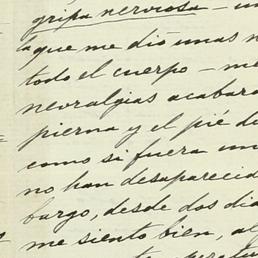 gripa nerviosa — un
la que me dió unas n
todo el cuerpo — me
nevralgias acabara
pierna y el pié de
como si fuera un
no han desaparecid
bargo, desde dos día
me siento bien, al